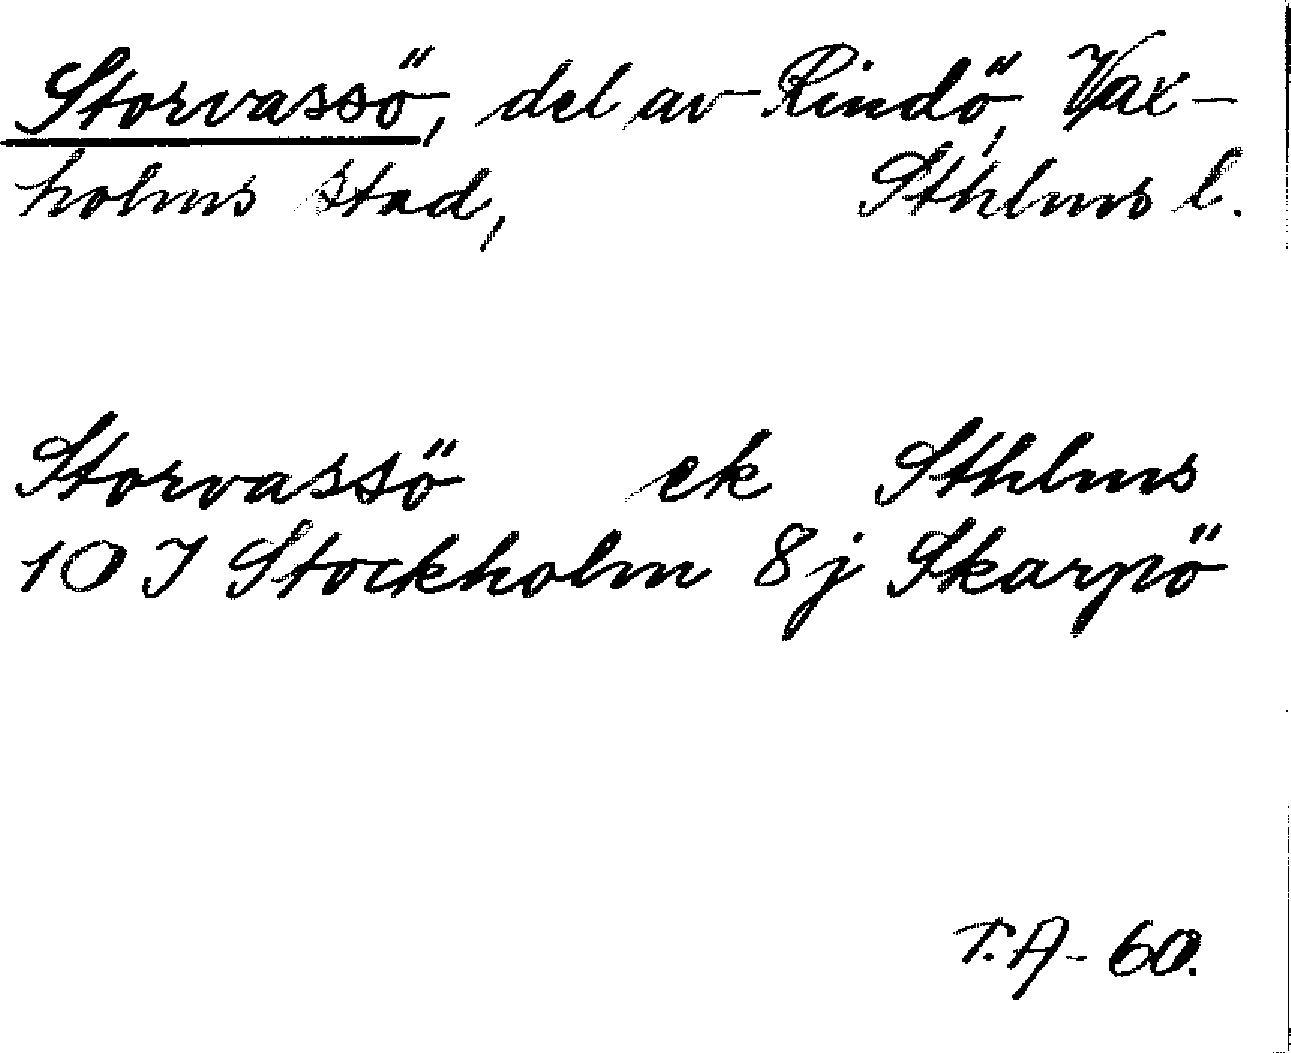 Storvassö, del av Rindö, Vax-
holms stad, Sthlms l.
Storvassö ek Sthlms
10 I Stockholm 8j Skarpö
T.A. 60.